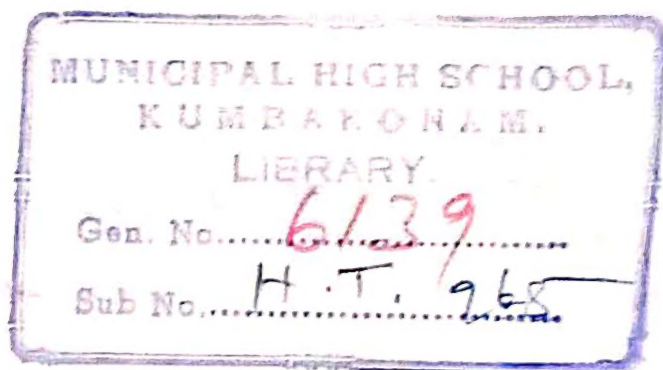 MUNICIPAL HIGH SCHOOL,
KUMBAKONAM.
LIBRARY.
Gen. No. 6139
Sub No. H.T. 968